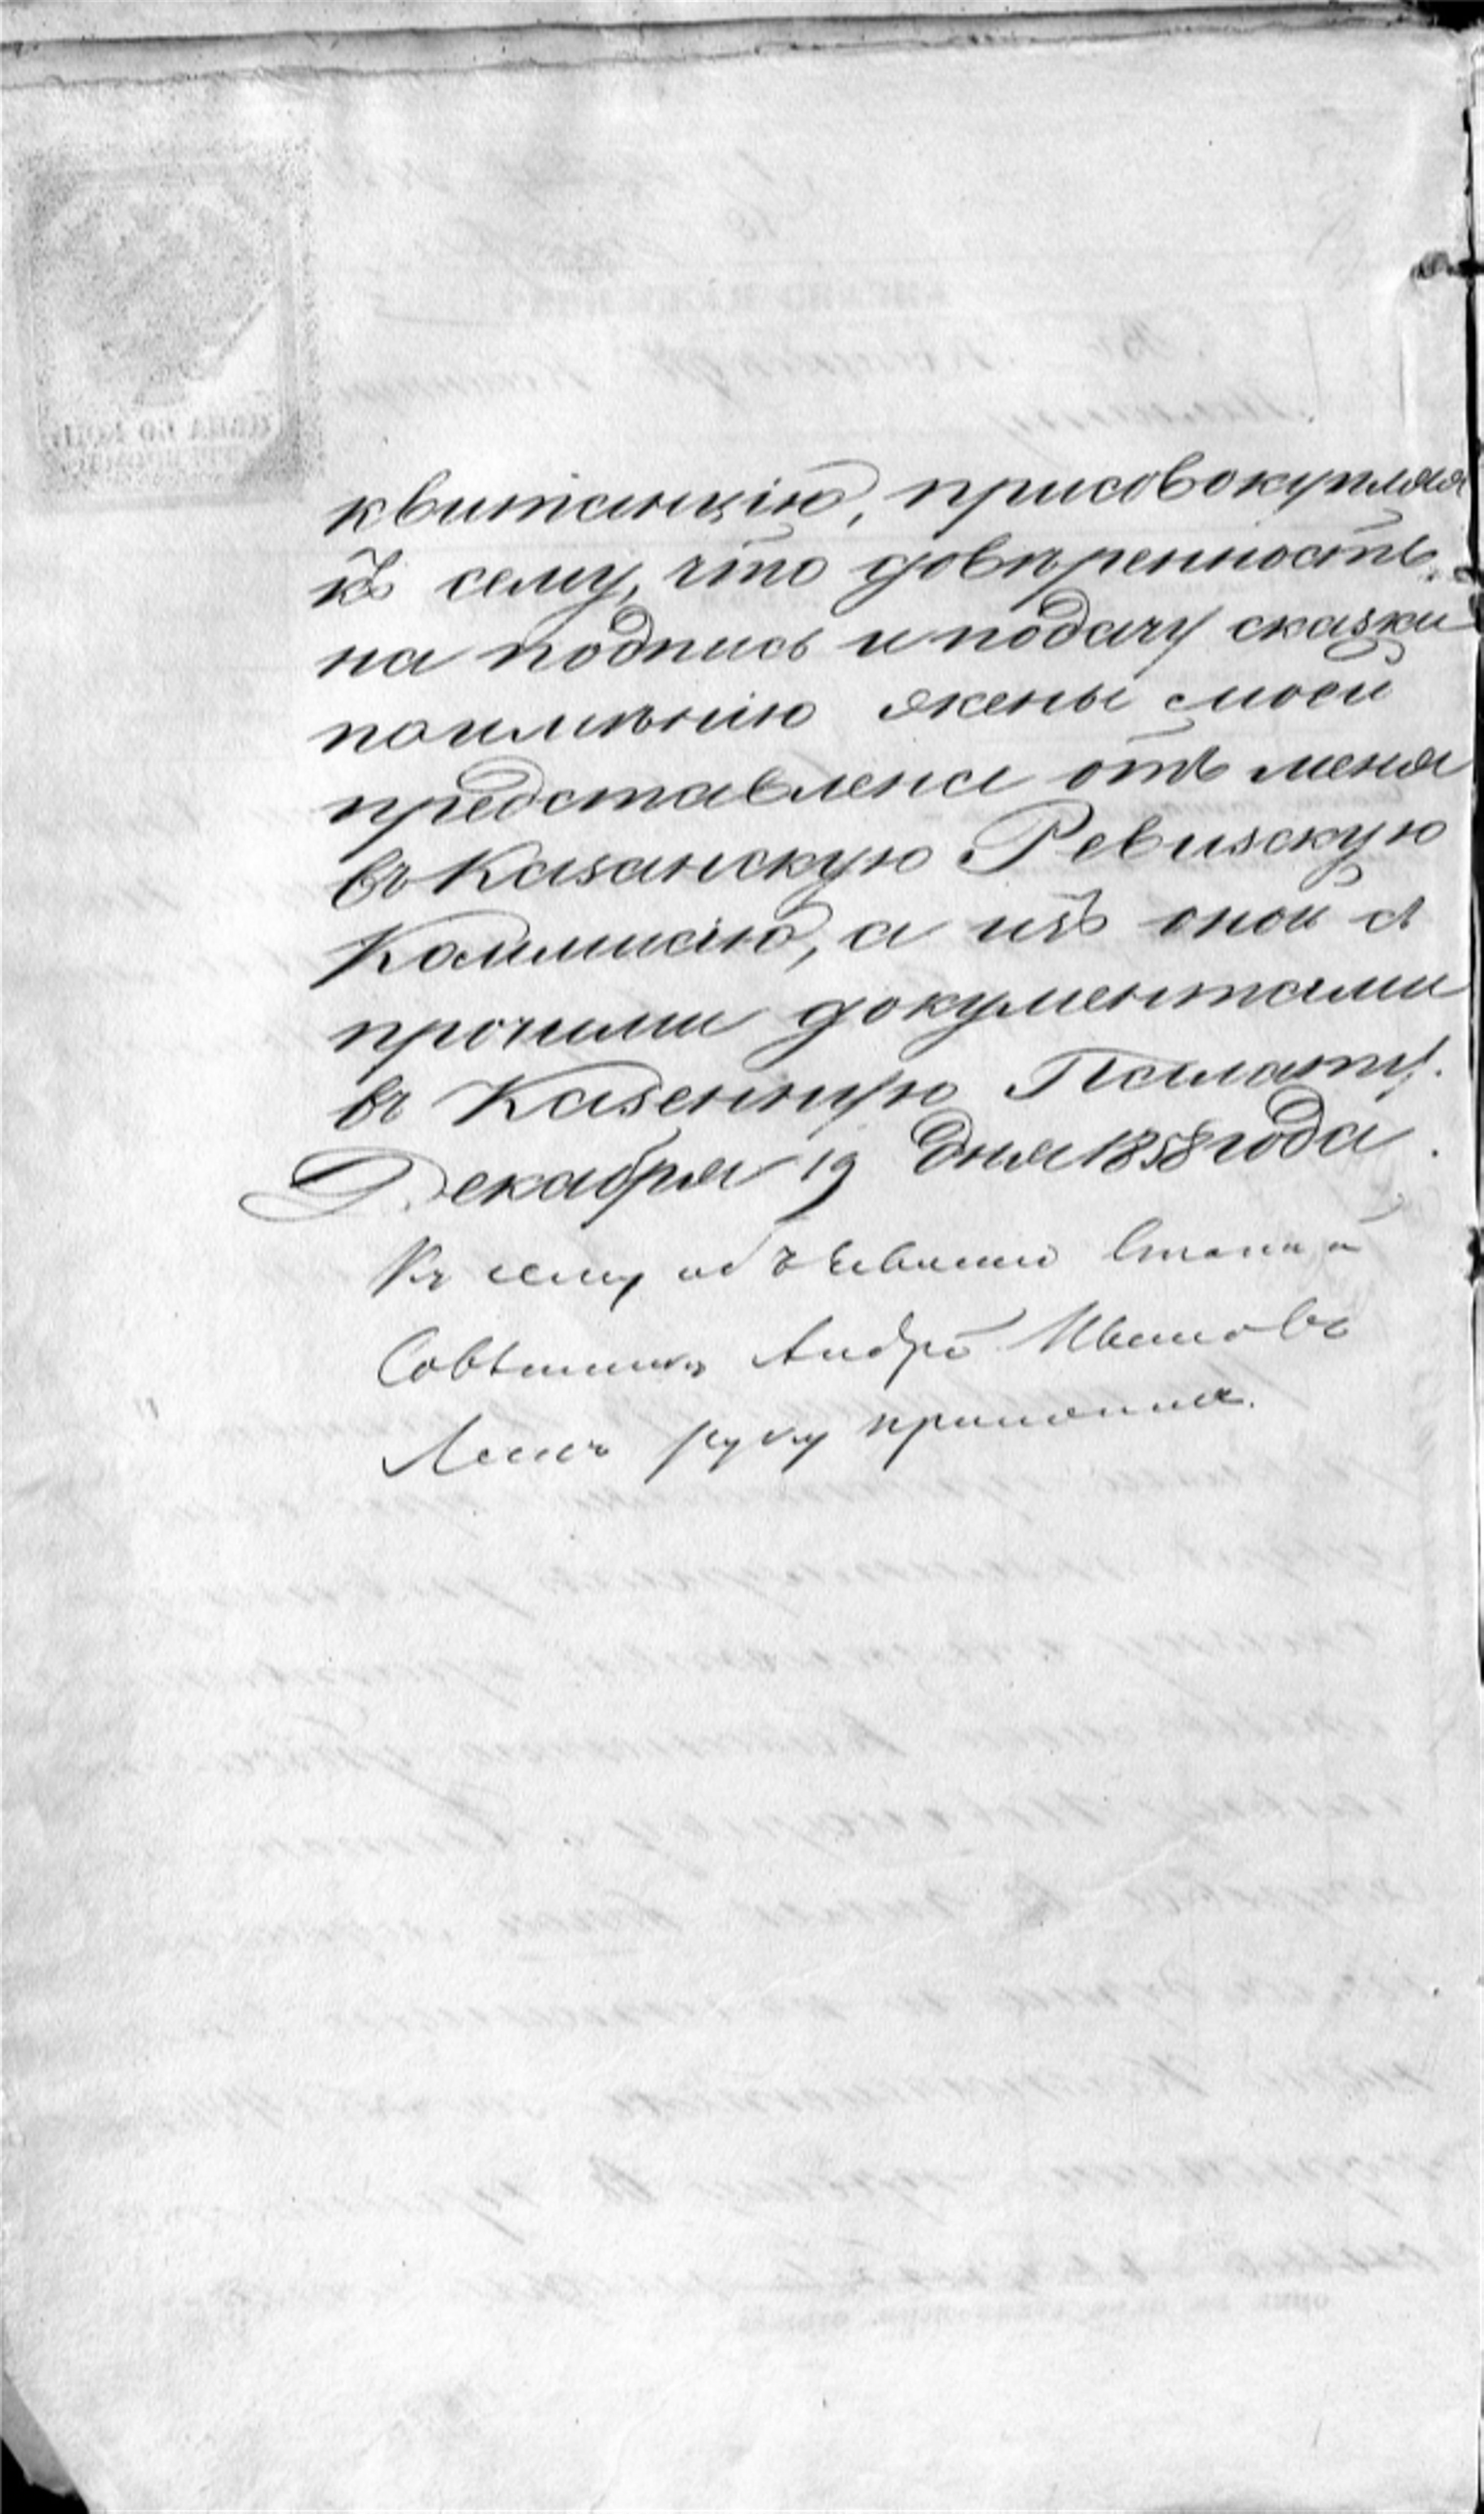 квитанцію, присовокупляя
къ сему, что довѣренность
на подпись и подачу сказки
поимѣнію жены моей
представлена отъ меня
въ Казанскую Ревизскую
Коммисію, а изъ оной съ
прочими документами
въ Казенную Палату.
Декабря 19 дня 1858 года.
Къ сему объявленію Статскій
Совѣтникъ Андрей Ивановъ
руку приложилъ.